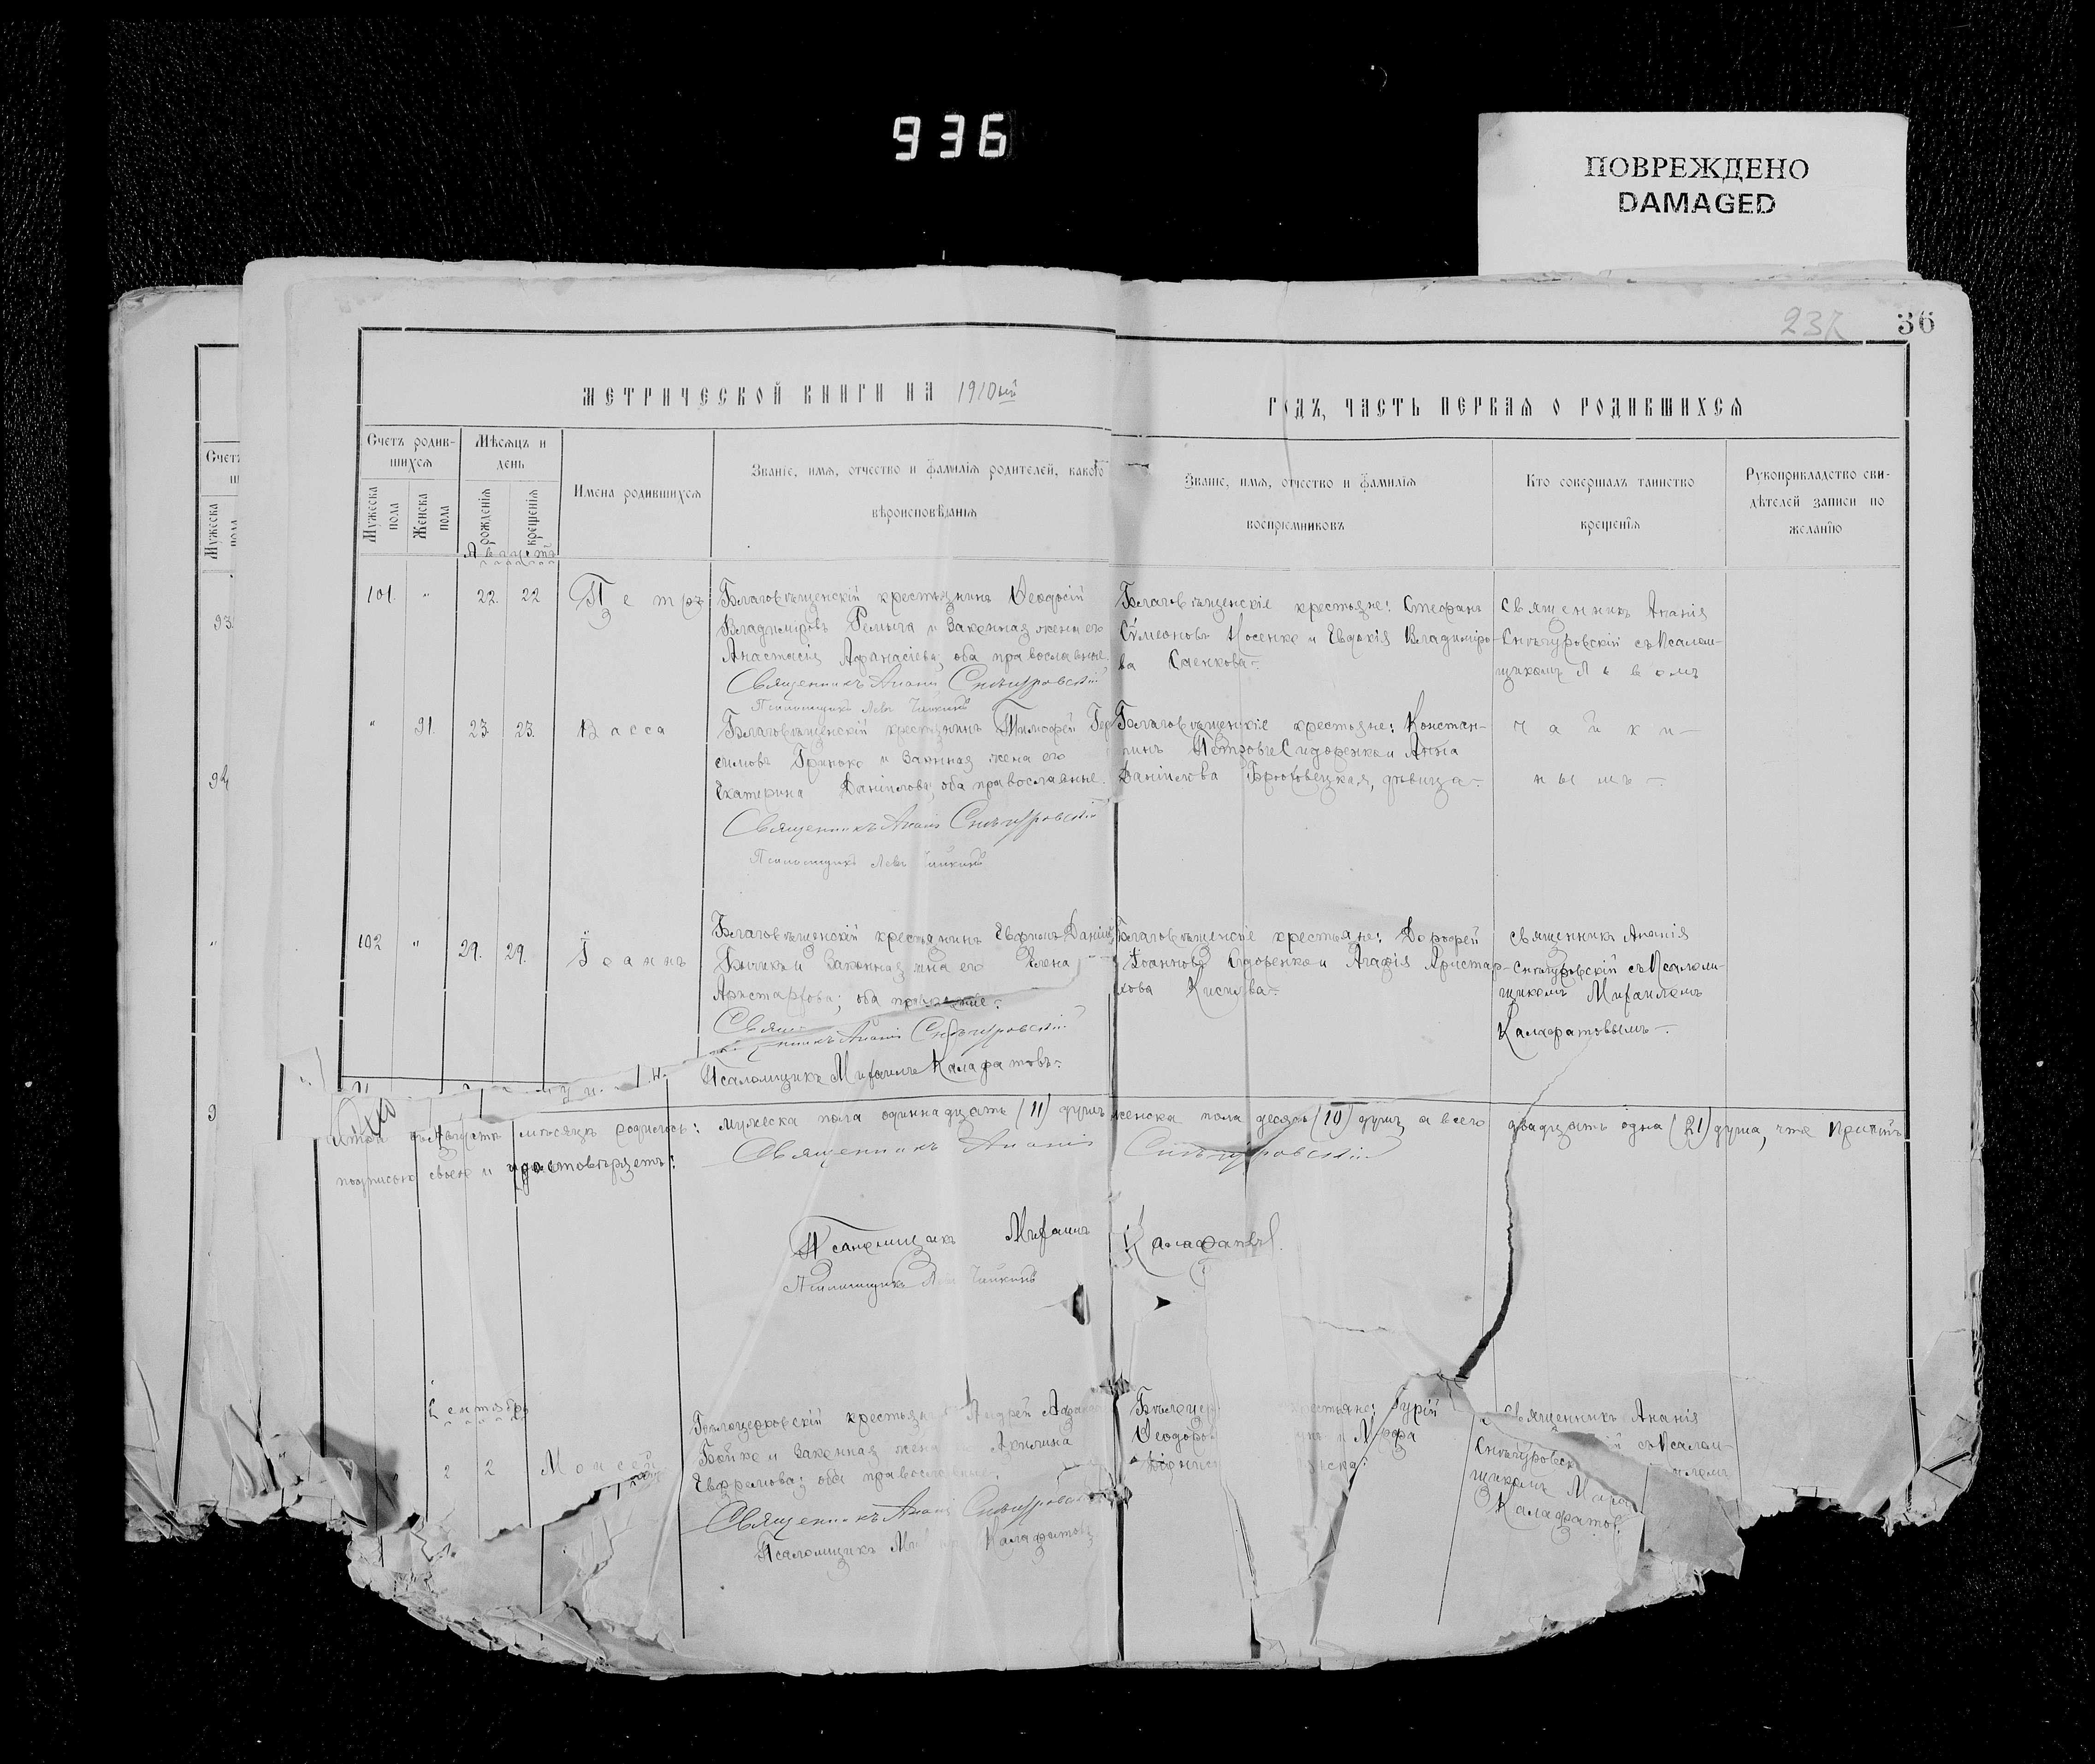 936
ПОВРЕЖДЕНО
DAMAGED
237
36
МЕТРИЧЕСКОЙ КНИГИ НА 1910ый
ГОДЪ, ЧАСТЬ ПЕРВАЯ О РОДИВШИХСЯ
Счетъ родив-
шихся
Мѣсяцъ и
день
Мужеска пола
Женска пола
рожденія
крещенія
Имена родившихся
Званіе, имя, отчество и фамилія родителей, какого
вѣроисповѣданія
Званіе, имя, отчество и фамилія
воспріемниковъ
Кто совершалъ таинство
крещенія
Рукоприкладство сви-
дѣтелей записи по
желанію
Августъ
101. " 22. 22 Петръ
Благовѣщенскій крестьянинъ Ѳеодосій
Владиміровъ Ремыга и законная жена его
Анастасія Афанасіева; оба православные.
Священникъ Ананія Снѣгуровскій
Псаломщикъ Левъ Чайкинъ
Благовѣщенскіе крестьяне: Стефанъ
Сѵмеоновъ Носенко и Евдокія Владиміро-
ва Саенкова.
Священникъ Ананія
Снѣгуровскій съ Псалом-
щикомъ Львомъ
" 91. 23. 23. Васса
Благовѣщенскій крестьянинъ Тимофей Гер
симовъ Гринько и законная жена его
Екатерина Даніилова; оба православные.
Священникъ Ананія Снѣгуровскій
Псаломщикъ Левъ Чайкинъ
Благовѣщенскіе крестьяне: Констан-
тинъ Петровъ Сидоренко и Анна
Даніилова Брюховецкая, дѣвица.
Чайки-
нымъ
102 " 29. 29. Іоаннъ
Благовѣщенскій крестьянинъ Евфимъ Даніил
и законная жена его Елена
Аристархова; оба православные.
Священникъ Ананія Снѣгуровскій
Псаломщикъ Михаилъ Калафатовъ.
Благовѣщенскіе крестьяне: Дорофей
Іоанновъ и Агафія Аристар-
хова
Священникъ Ананія
Снѣгуровскій съ Псалом-
щикомъ Михаиломъ
Калафатовымъ.
Итого въ Августѣ мѣсяцѣ родилось: мужеска пола одиннадцать (11) душъ женска пола десять (10) душъ, а всего двадцать одна (21) душа, что причтъ
подписью своею и удостовѣряетъ:
Священникъ Ананія Снѣгуровскій
Псаломщикъ Михаилъ Калафатовъ.
Псаломщикъ Левъ Чайкинъ
Сентябрь
2 2 Моисей
Бѣлоцерковскій крестьян Андрей
Бойко и законная жена Акилина
Евфремова; оба православные.
Священникъ Ананія Снѣгуровскій
Псаломщикъ Калафатовъ
крестьяне: Гурій
Ѳеодоро
Священникъ Ананія
Снѣгуровск съ Псалом-
щикомъ
Калафатов